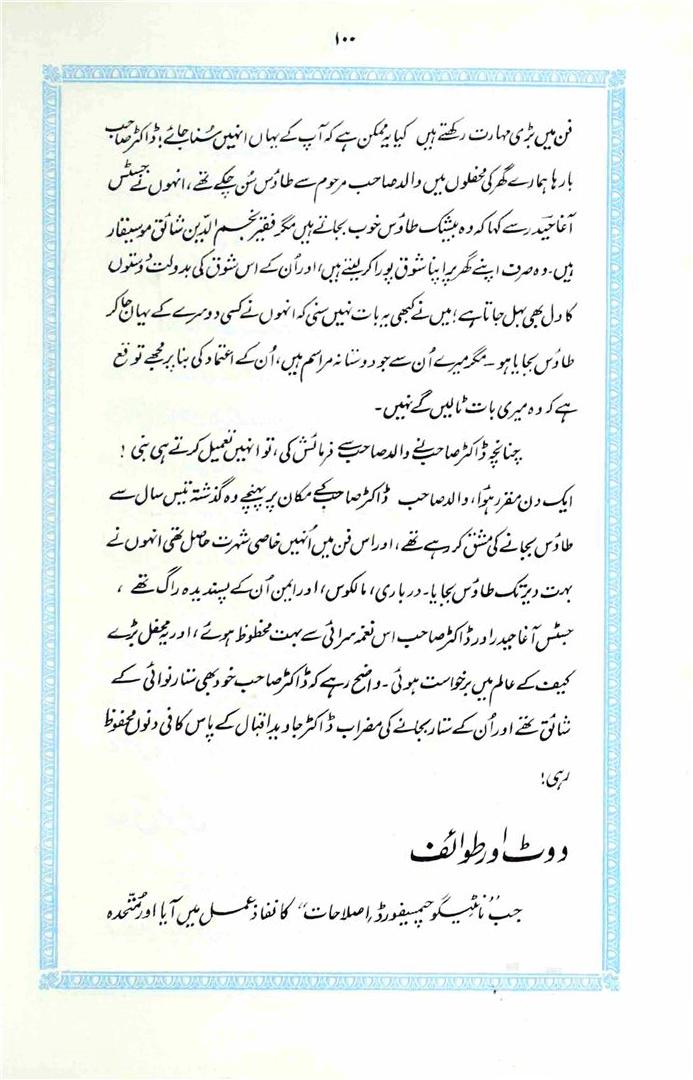 ۱۰۰
فن میں بڑی مہارت رکھتے ہیں کیا یہ ممکن ہے کہ آپ کے یہاں انہیں سُنا جائے؛ ڈاکٹر صاحب
بارہا ہمارے گھر کی محفلوں میں والد صاحب مرحوم سے طاؤس سُن چکے تھے، انہوں نے جسٹس
آغا حیدر سے کہا کہ وہ بیشک طاؤس خوب بجاتے ہیں مگر فقیر نجم الدّین شائق موسیقار
ہیں۔ وہ صرف اپنے گھر پر اپنا شوق پورا کر لیتے ہیں، اور اُن کے اس شوق کی بدولت دوستوں
کا دل بھی بہل جاتا ہے؛ میں نے کبھی یہ بات نہیں سنی کہ انہوں نے کسی دوسرے کے یہاں جا کر
طاؤس بجایا ہو – مگر میرے اُن سے جو دوستانہ مراسم ہیں، اُن کے اعتماد کی بنا پر مجھے توقع
ہے کہ وہ میری بات ٹالیں گے نہیں۔
چنانچہ ڈاکٹر صاحب نے والد صاحب سے فرمائش کی، تو انہیں تعمیل کرتے ہی بنی !
ایک دن مقرر ہوا، والد صاحب ڈاکٹر صاحب کے مکان پر پہنچے وہ گذشتہ تیس سال سے
طاؤس بجانے کی مشق کر رہے تھے، اور اس فن میں اُنہیں خاصی شہرت حاصل تھی انہوں نے
بہت دیر تک طاؤس بجایا۔ درباری، مالکوس، اور ایمن اُن کے پسندیدہ راگ تھے ،
جسٹس آغا حیدر اور ڈاکٹر صاحب اس نغمہ سرائی سے بہت محظوظ ہوئے، اور یہ محفل بڑے
کیف کے عالم میں برخواست ہوئی۔ واضح رہے کہ ڈاکٹر صاحب خود بھی ستار نوائی کے
شائق تھے اور اُن کے ستار بجانے کی مضراب ڈاکٹر جاوید اقبال کے پاس کافی دنوں محفوظ
رہی!
ووٹ اور طوائف
جب ”مانٹیگو چیمسفورڈ اصلاحات“ کا نفاذ عمل میں آیا اور مُتّحدہ